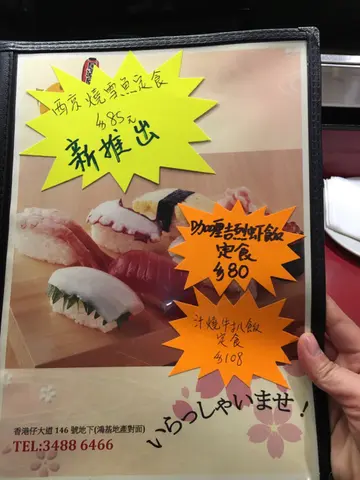 西京燒雪魚定食
$85元
新推出
咖喱吉列蝦飯
定食
$80
汁燒牛扒飯
定食
$108
いらっしゃいませ!
香港仔大道 146 號地下(鴻基地產對面)
TEL:3488 6466